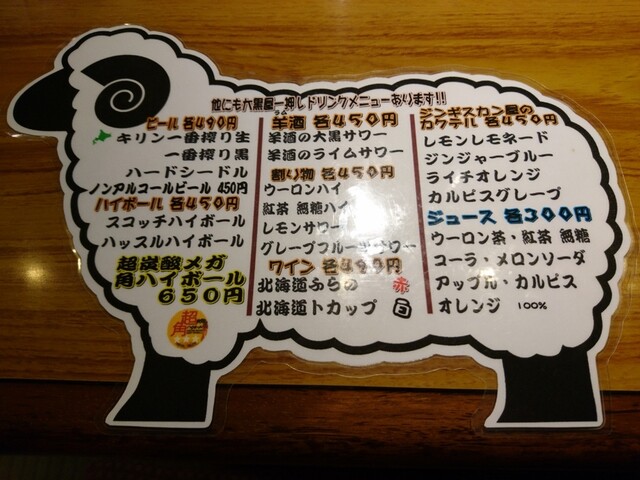 他にも大黒屋一押しドリンクメニューあります!!
ビール 各490円
キリン一番搾り生
一番搾り黒
ハードシードル
ノンアルコールビール 450円
ハイボール 各450円
スコッチハイボール
ハッスルハイボール
超炭酸メガ
角ハイボール
650円
超
角
羊酒 各450円
羊酒の大黒サワー
羊酒のライムサワー
割り物 各450円
ウーロンハイ
紅茶 無糖ハイ
レモンサワー
グレープフルーツサワー
ワイン 各490円
北海道ふらの 赤
北海道トカップ 白
ジンギスカン屋の
カクテル 各450円
レモンレモネード
ジンジャーブルー
ライチオレンジ
カルピスグレープ
ジュース 各300円
ウーロン茶・紅茶 無糖
コーラ・メロンソーダ
アップル・カルピス
オレンジ 100%